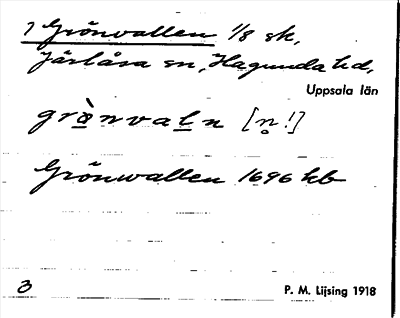 7 Grönvallen 1/8 sk,
Järlåsa sn, Hagunda hd,
Uppsala län
grò̱nvaḻn [ṇ!]
Grönwallen 1696 kb
3
P. M. Lijsing 1918